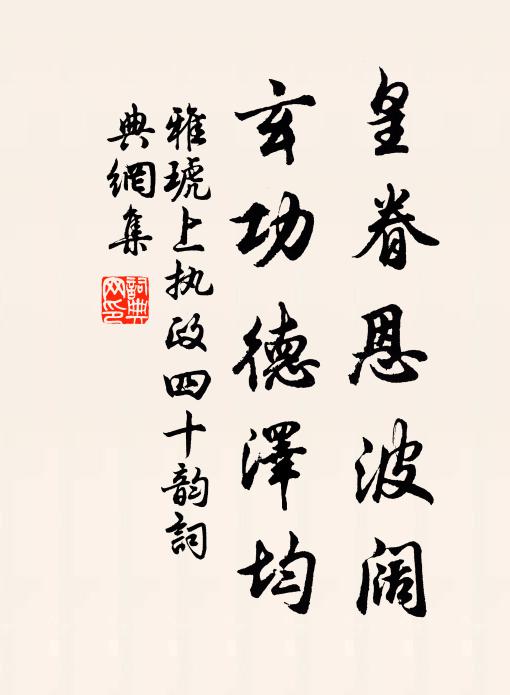 皇眷恩波阔
玄功德澤均
雅琥上执政四十韵詞
典網集
詞典网印